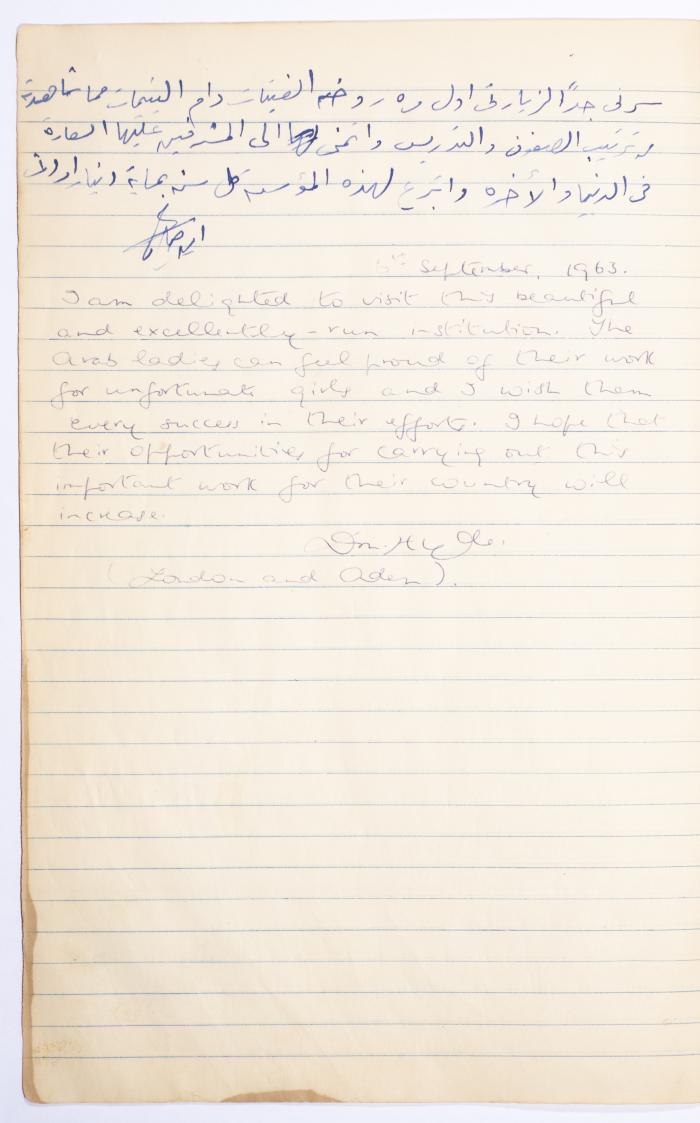 سرني جداً لزيارتي اول مره روضه الفتيات دام اليتيمات مما شاهدته
من ترتيب الصفوف والتدريس واتمنى الى المشرفين عليها السعادة
في الدنيا والأخره واتبرع لهذه المؤسسه كل سنه بماية دينار اردني
September, 1963.
I am delighted to visit this beautiful
and excellently-run institution. The
Arab ladies can feel proud of their work
for unfortunate girls and I wish them
every success in their efforts. I hope that
their opportunities for carrying out this
important work for their country will
increase.
(London and Aden).